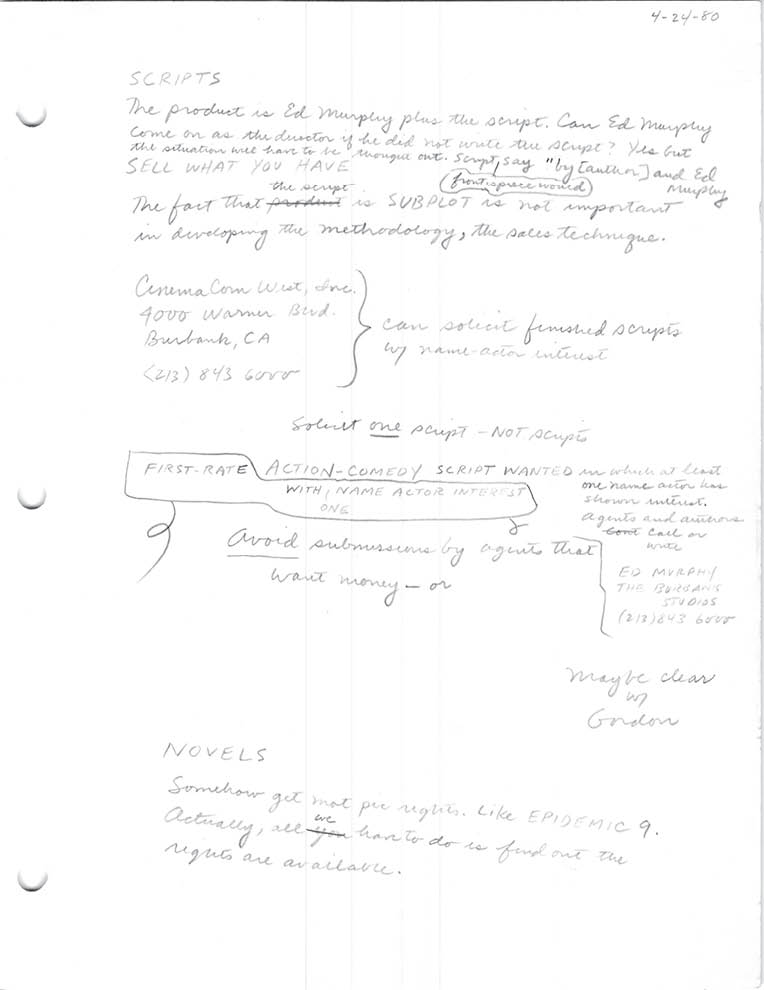 4-24-80
SCRIPTS
The product is Ed Murphy plus the script. Can Ed Murphy
come on as the director if he did not write the script? Yes but
the situation will have to be thought out. Script, say "by [author] and Ed
Murphy
SELL WHAT YOU HAVE
frontispiece would
the script
The fact that product is SUBPLOT is not important
in developing the methodology, the sales technique.
CinemaCom West, Inc.
4000 Warner Blvd.
Burbank, CA
(213) 843 6000
can solicit finished scripts
w/ name-actor interest
Solicit one script - NOT scripts
FIRST-RATE ACTION-COMEDY SCRIPT WANTED in which at least
one name actor has
shown interest.
WITH, NAME ACTOR INTEREST
ONE
Agents and authors
Cont call or
write
ED MURPHY
THE BURBANK
STUDIOS
(213) 843 6000
Avoid submissions by agents that
want money - or
Maybe clear
w/
Gordon
NOVELS
Somehow get mot pic rights. Like EPIDEMIC 9.
we
Actually, all you have to do is find out the
rights are available.